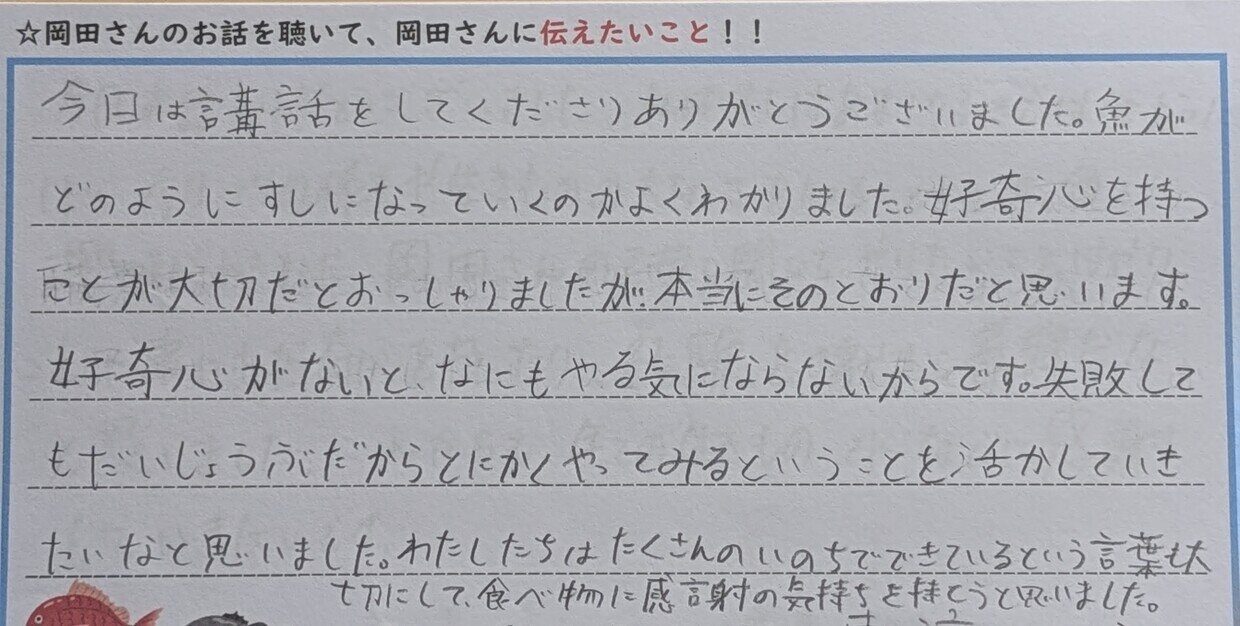 ☆岡田さんのお話を聴いて、岡田さんに伝えたいこと！！
今日は講話をしてくださりありがとうございました。魚が
どのようにすしになっていくのかよくわかりました。好奇心を持つ
ことが大切だとおっしゃりましたが、本当にそのとおりだと思います。
好奇心がないと、なにもやる気にならないからです。失敗して
もだいじょうぶだからとにかくやってみるということを活かしていき
たいなと思いました。わたしたちはたくさんのいのちでできているという言葉も大
切にして、食べ物に感謝の気持ちを持とうと思いました。